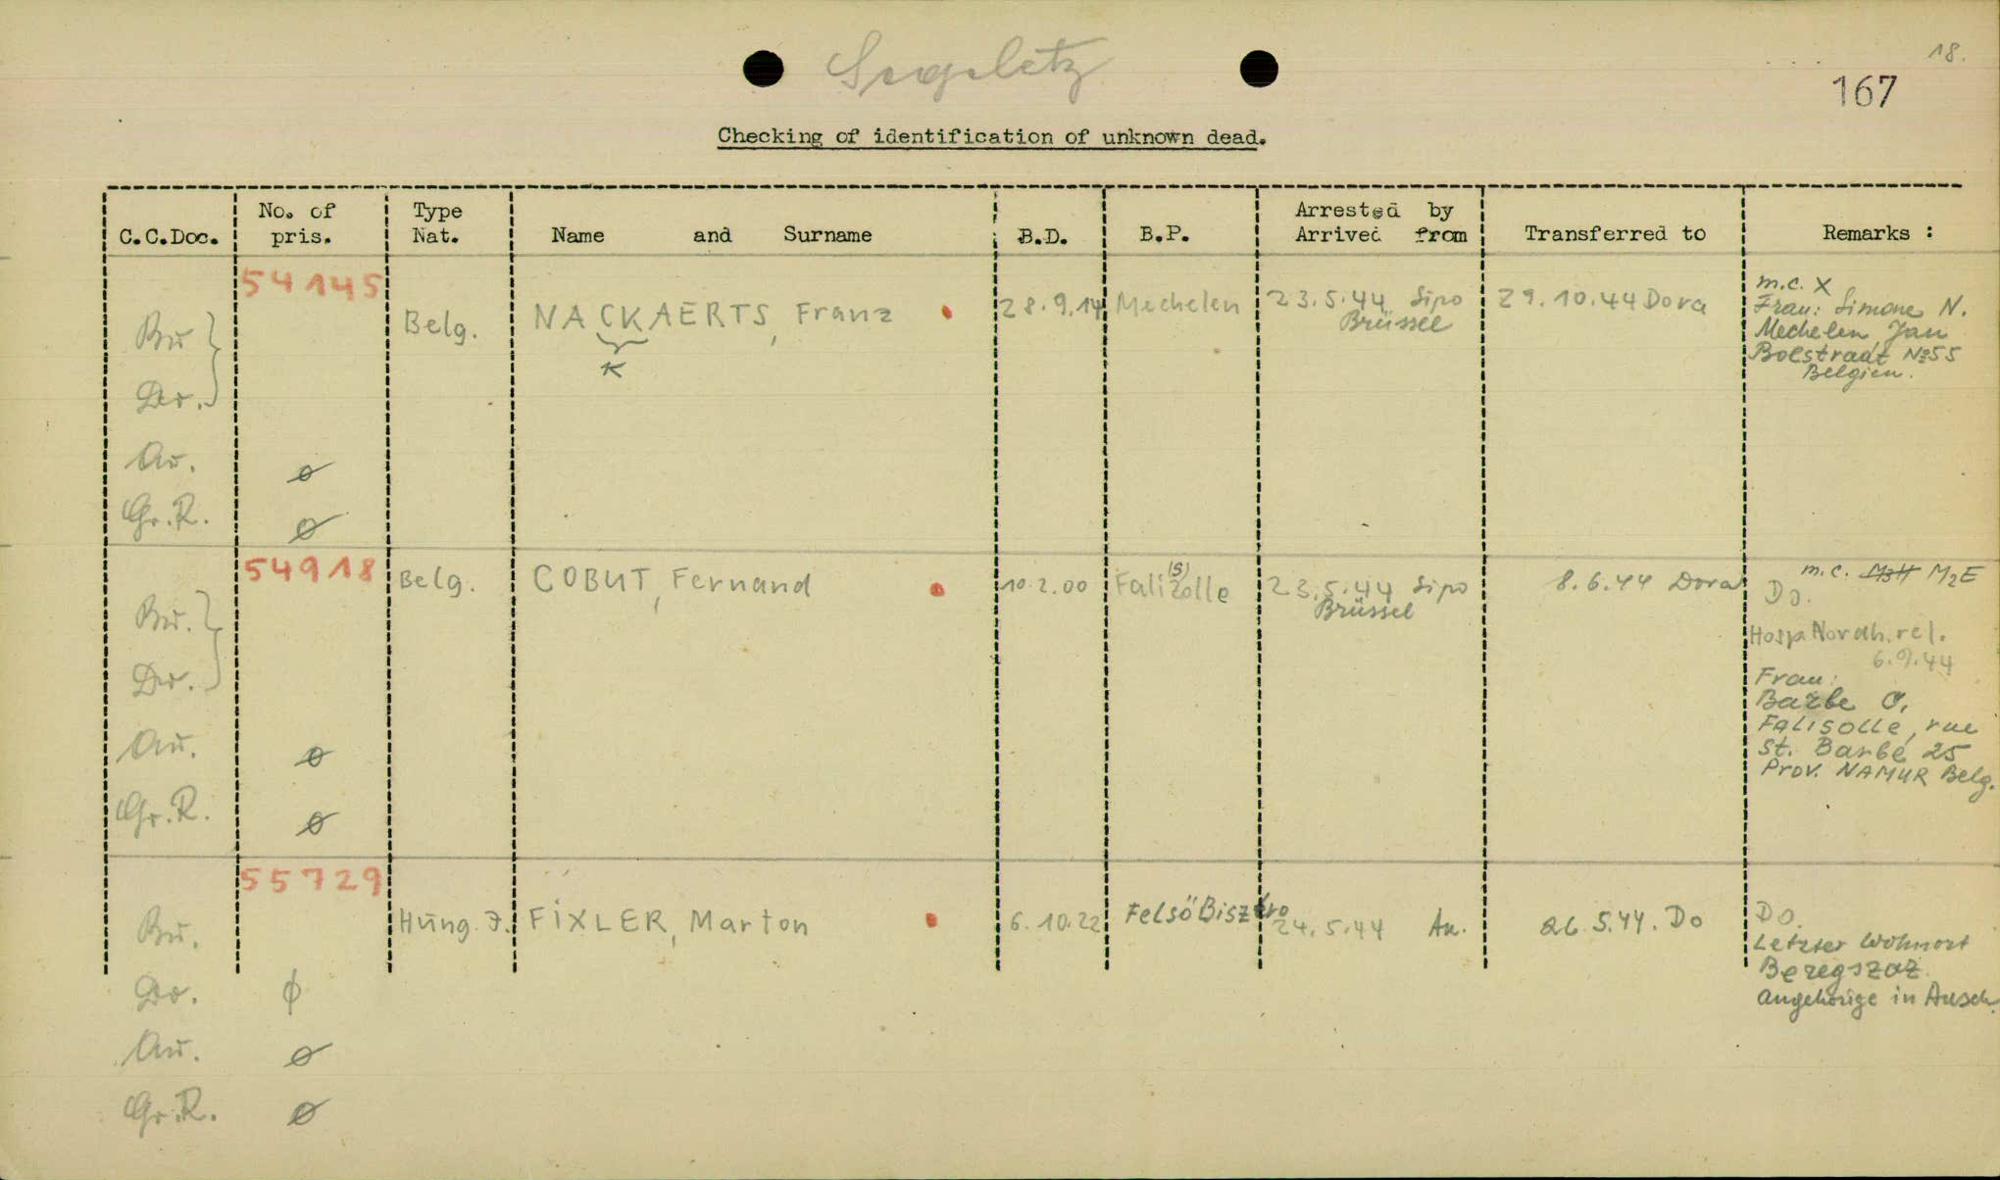 18.
167
Checking of identification of unknown dead.
C.C.Doc. No. of pris. Type Nat. Name and Surname B.D. B.P. Arrested by Arrived from Transferred to Remarks :
54145
Bu Do. Belg. NACKAERTS, Franz 28.9.14 Mechelen 23.5.44 Sipo Brüssel 29.10.44 Dora
K
m.c. X
Frau: Simone N.
Mechelen Jan
Bolstraat №55
Belgien.
Au. ø
Gr.R. ø
54918
Bu. Do. Belg. COBUT, Fernand 10.2.00 Falizolle (S) 23.5.44 Sipo Brüssel 8.6.44 Dora
m.c. M2E
Do.
Hosp. Nordh. rel.
6.9.44
Frau:
Barbe C.
FALISOLLE, rue
St. Barbe 25
Prov. NAMUR Belg.
Au. ø
Gr.R. ø
55729
Bu. Hung. J. FIXLER, Marton 6.10.22 Felsö Bisztro 24.5.44 Au. 26.5.44. Do
Do.
Letzter Wohnort
Beregszaz
Angehörige in Ausch.
Do. ø
Au. ø
Gr.R. ø